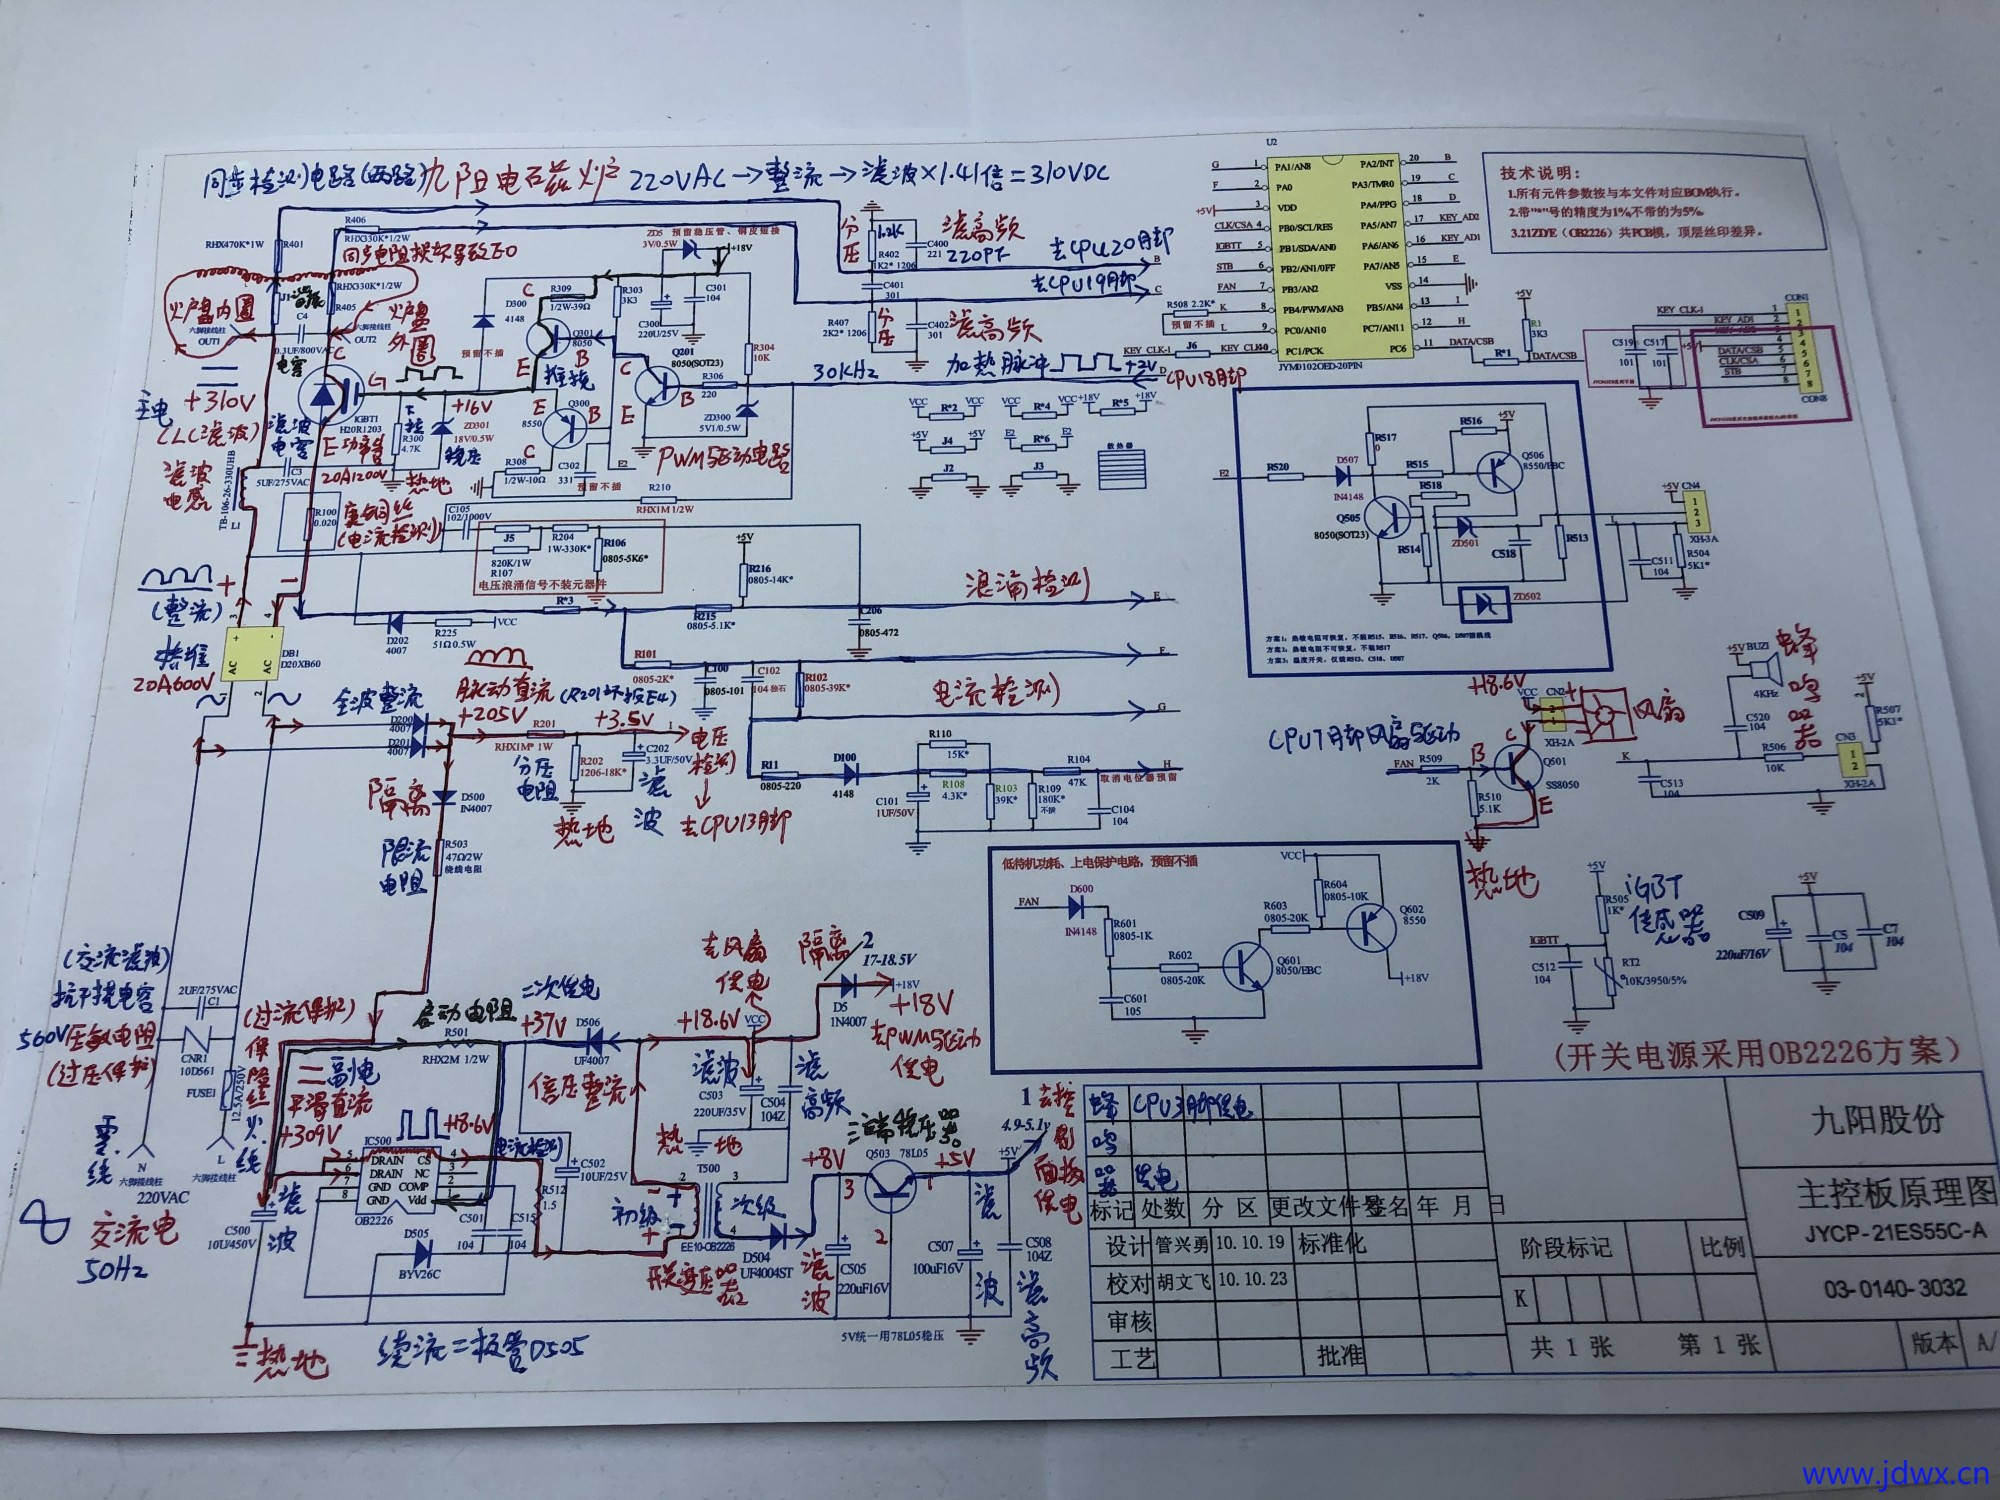 同步检测电路(两路)九阳电磁炉 220VAC→整流→滤波×1.41倍=310VDC
U2
G 1 PA1/AN8
F 2 PA0
+5V 3 VDD
CLK/CSA 4 PB0/SCL/RES
IGBTT 5 PB1/SDA/AN0
STB 6 PB2/AN1/0FF
FAN 7 PB3/AN2
K 8 PB4/PWM/AN3
L 9 PC0/AN10
KEY CLK-1 J6 KEY CLK 10 PC1/PCK
PA2/INT 20 B
PA3/TMR0 19 C
PA4/PPG 18 D
PA5/AN7 17 KEY_AD2
PA6/AN6 16 KEY_AD1
PA7/AN5 15 E
VSS 14
PB5/AN4 13 I
PC7/AN11 12 H
PC6 11 DATA/CSB
JYM0102OED-20PIN
R508 2.2K*
预留不插
技术说明:
1.所有元件参数按与本文件对应BOM执行。
2.带"*"号的精度为1%不带的为5%。
3.21ZD7E(OB2226)共PCB模,顶层丝印差异。
+5V
R1
3K3
R*1
DATA/CSB
KEY CLK-1
KEY_AD1
DATA/CSB
CLK/CSA
STB
CON1
CON8
1
2
3
4
5
6
7
8
C519
101
C517
101
RHX470K*1W
R401
R406
RHX330K*1/2W
同步电阻损坏导致E0
RHX330K*1/2W
R405
火炉盘内圈
六脚接线柱
OUT1
J1
C4
0.3UF/800VAC
电容
六脚接线柱
OUT2
火炉盘外圈
ZD5 预留稳压管、铜皮短接
3V/0.5W
+18V
分压
1.2K
R402
1K2* 1206
C400
221
滤高频
220PF
去CPU20脚
B
C401
301
去CPU19脚
C
R407
2K2* 1206
分压
C402
301
滤高频
D300
4148
预留不插
R309
1/2W-39Ω
R303
3K3
C300
220U/25V
C301
104
Q301
8050
C
B
E
推挽
Q300
8550
E
B
C
Q201
8050(SOT23)
C
B
E
R304
10K
R306
220
ZD300
5V1/0.5W
30KHz 加热脉冲 +3V
D
CPU18脚
主电+310V
(LC滤波)
滤波电感
TB-106-26-330UHB
L1
滤波电容
C3
5UF/275VAC
C
G
E功率管
IGBT1
H20R1203
20A1200V
R300
4.7K
+16V
ZD301
18V/0.5W
稳压
热地
R308
1/2W-10Ω
C302
331
预留不插
E2
PWM驱动电路
R210
RHX1M 1/2W
R100
0.020
康铜丝
(电流检测)
C105
102/1000V
J5
820K/1W
R107
R204
1W-330K*
R106
0805-5K6*
电压浪涌信号不装元器件
VCC R*2 VCC
VCC R*4 VCC
+18V R*5 +18V
+5V J4 +5V
E2 R*6 E2
J2
J3
散热器
E2
R520
D507
IN4148
R517
0
R516
+5V
R515
R518
Q506
8550/EBC
Q505
8050(SOT23)
R514
ZD501
C518
R513
ZD502
+5V CN4
1
2
3
XH-3A
C511
104
R504
5K1*
(整流)
+
−
桥堆
20A600V
DB1
D20XB60
AC
AC
R*3
+5V
R216
0805-14K*
R215
0805-5.1K*
C206
0805-472
浪涌检测
E
D202
4007
R225
51Ω 0.5W
VCC
R101
0805-2K*
C100
0805-101
C102
104 独石
R102
0805-39K*
F
电流检测
G
全波整流
D200
4007
D201
4007
脉动直流(R201坏报E4)
+205V
R201
RHX1M* 1W
+3.5V
I
分压电阻
R202
1206-18K*
C202
3.3UF/50V
滤波
电压检测
去CPU13脚
热地
隔离
D500
IN4007
限流电阻
R503
47Ω/2W
绕线电阻
R11
0805-220
D100
4148
R110
15K*
R108
4.3K*
C101
1UF/50V
R103
39K*
R109
180K*
不插
R104
47K
C104
104
取消电位器预留
H
CPU7脚风扇驱动
FAN
R509
2K
R510
5.1K
+18.6V
VCC
CN2
XH-2A
风扇
Q501
SS8050
B
C
E
热地
+5V BUZ1
4KHz
蜂鸣器
C520
104
K
C513
104
R506
10K
CN3
1
2
XH-2A
+5V
R507
5K1*
+5V
R505
1K*
IGBT
传感器
IGBTT
C512
104
RT2
10K/3950/5%
+5V
C509
220uF/16V
C5
104
C7
104
低待机功耗、上电保护电路,预留不插
FAN
D600
IN4148
R601
0805-1K
R602
0805-20K
C601
105
Q601
8050/EBC
R603
0805-20K
VCC
R604
0805-10K
Q602
8550
+18V
(开关电源采用OB2226方案)
(交流滤波)
抗干扰电容
2UF/275VAC
C1
560V压敏电阻
(过压保护)
CNR1
10D561
(过流保护)
保险丝
FUSE1
12.5A/250V
零线
火线
N
六脚接线柱
L
六脚接线柱
220VAC
交流电
50Hz
启动电阻
R501
RHX2M 1/2W
二次供电
+37V
D506
UF4007
倍压整流
副电
平滑直流
+309V
+18.6V
IC500
5 DRAIN CS 4
6 DRAIN NC 3
7 GND COMP 2
8 GND Vdd 1
OB2226
电流检测
C500
10U/450V
滤波
D505
BYV26C
C501
104
C515
104
R512
1.5
C502
10UF/25V
去风扇供电
VCC
+18.6V
滤波
C503
220UF/35V
C504
104Z
滤高频
热地
隔离
2
17-18.5V
D5
1N4007
+18V
+18V
去PWM驱动供电
初级
次级
T500
EE10-OB2226
开关变压器
D504
UF4004ST
三端稳压器
Q503 78L05
+8V
+5V
3
1
2
C505
220uF16V
滤波
C507
100uF16V
滤波
C508
104Z
滤高频
1 去控制面板供电
4.9-5.1V
+5V
5V统一用78L05稳压
热地
续流二极管D505
蜂鸣器供电
CPU3脚供电
标记 处数 分 区 更改文件号 签名 年 月 日
设计 管兴勇 10.10.19 标准化
校对 胡文飞 10.10.23
审核
工艺 批准
阶段标记 比例
K
共 1 张 第 1 张
九阳股份
主控板原理图
JYCP-21ES55C-A
03-0140-3032
版本 A/
www.jdwx.cn